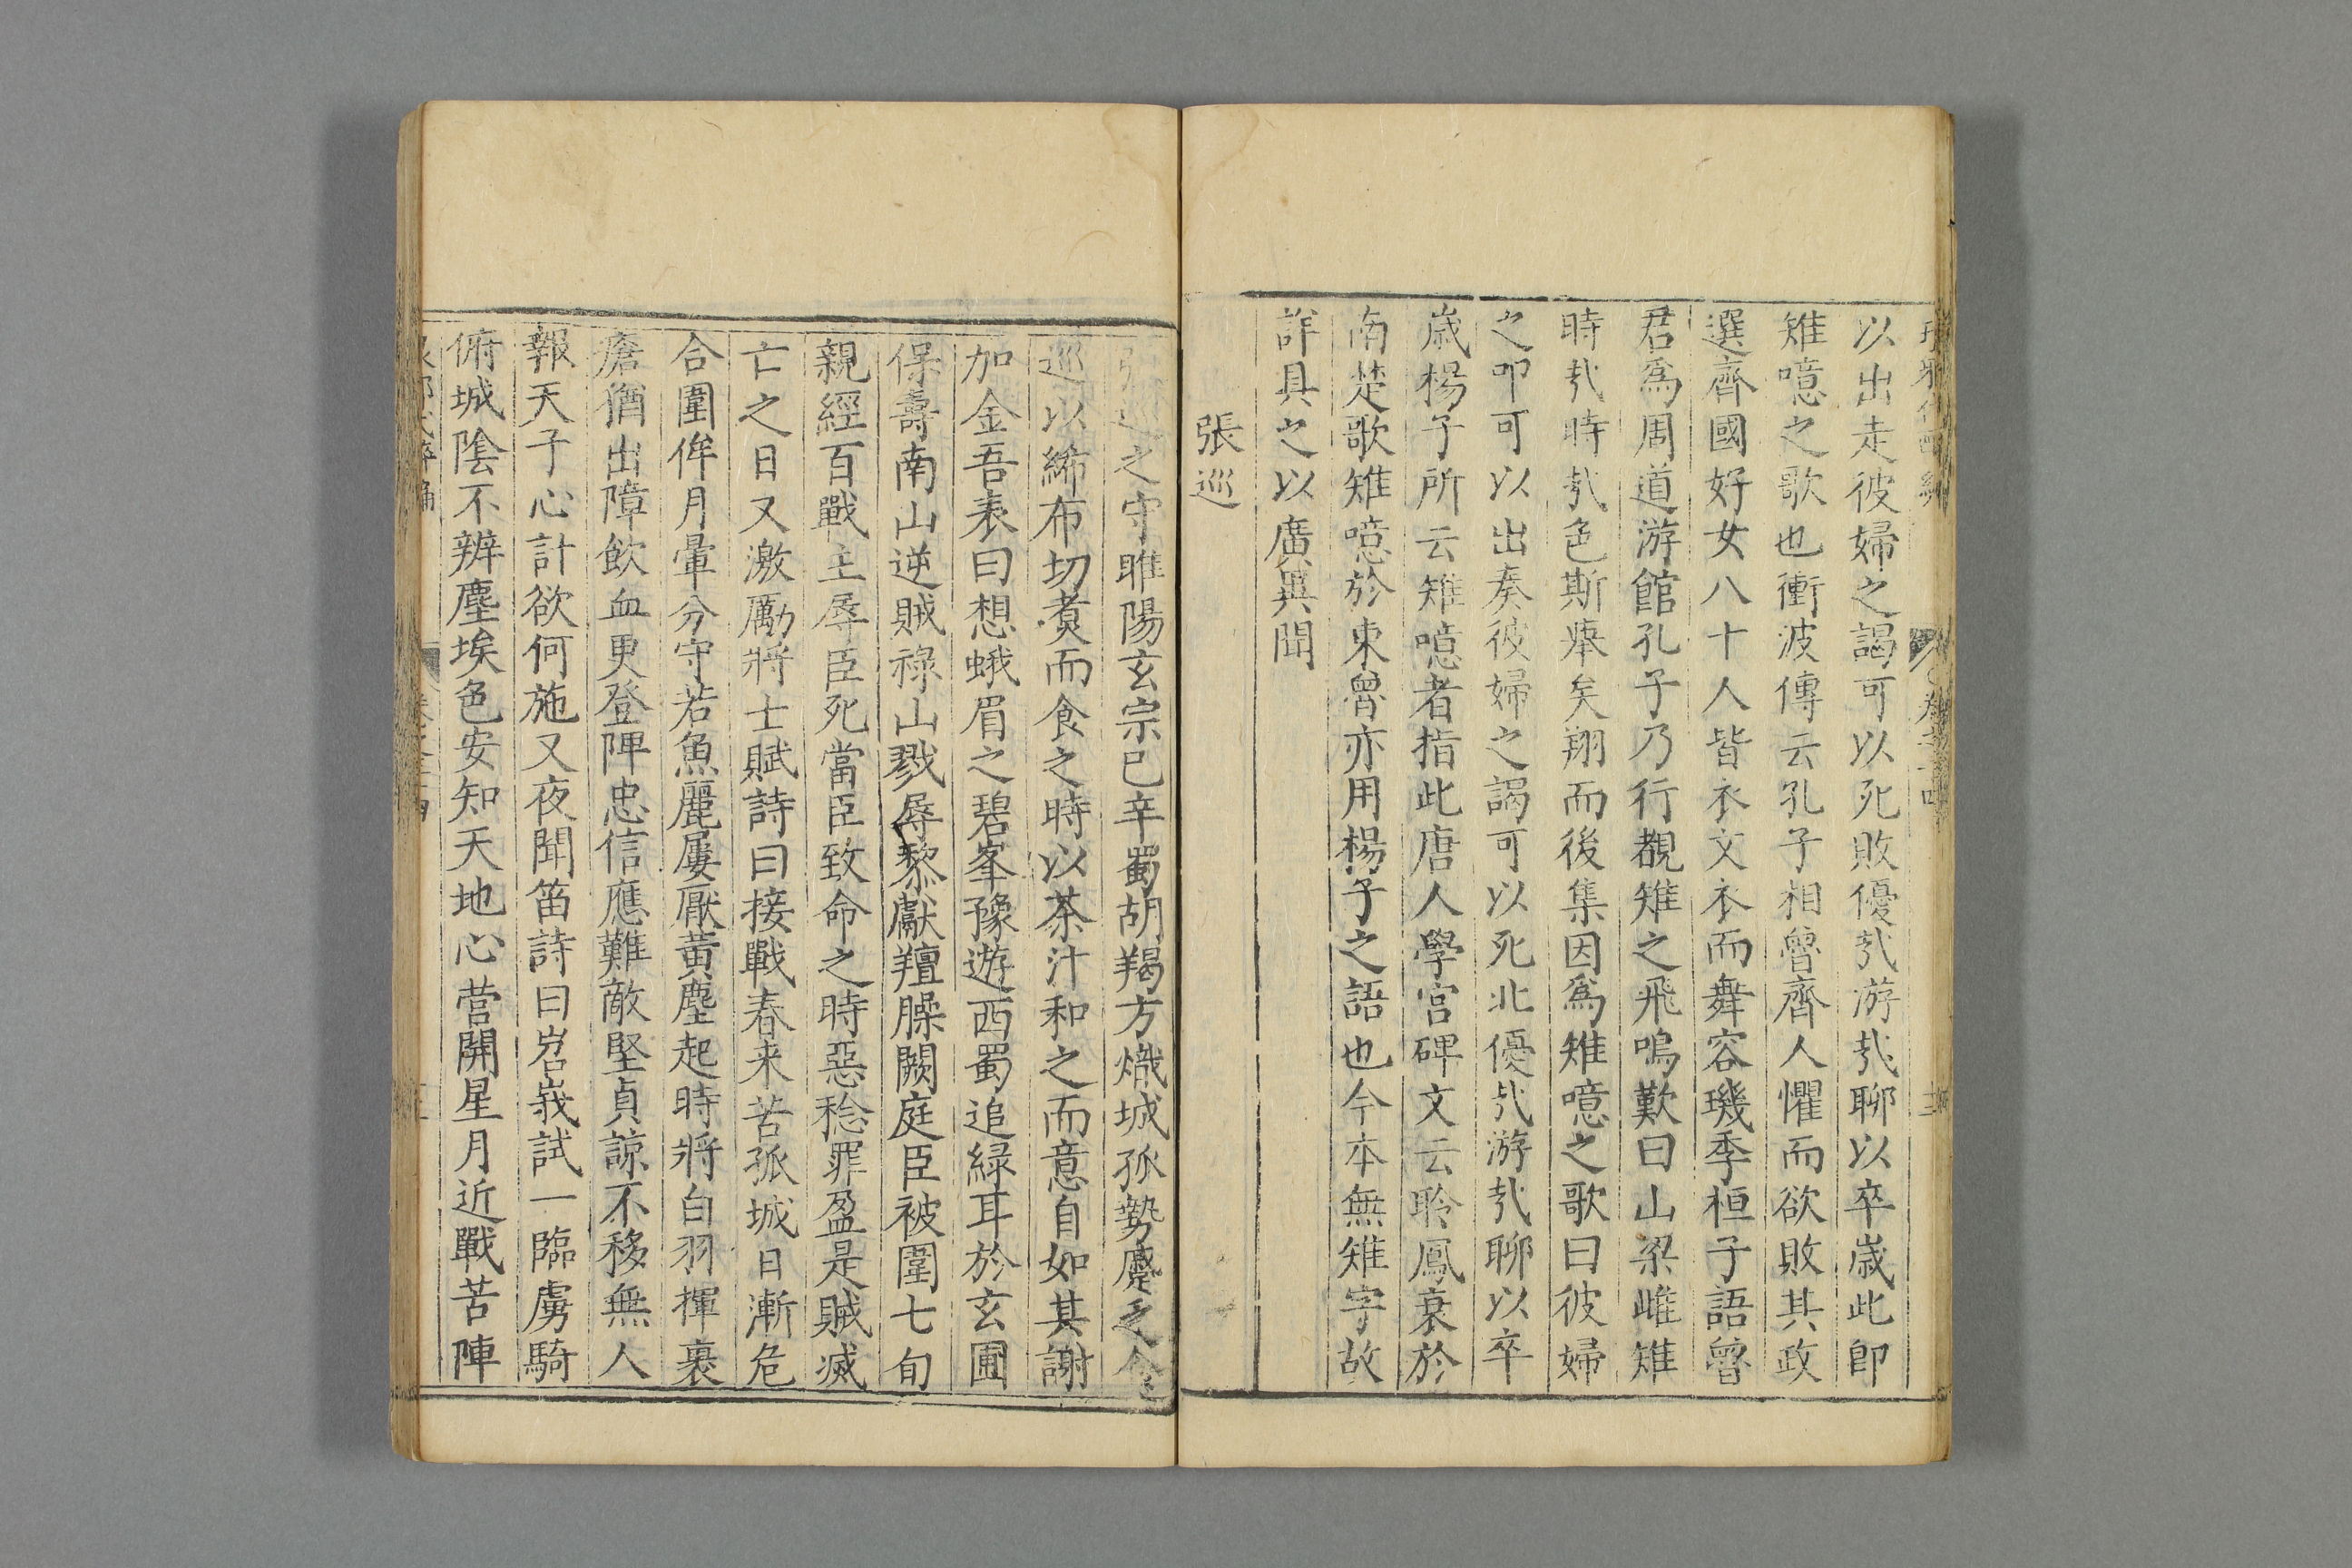 以出走彼婦之謁可以死敗優㢤游㢤聊以卒歲此即
雉噫之歌也衝波傳云孔子相魯齊人懼而欲敗其政
選齊國好女八十人皆衣文衣而舞容璣季桓子語魯
君爲周道游館孔子乃行覩雉之飛鳴歎曰山梁雌雉
時㢤時㢤色斯舉矣翔而後集因爲雉噫之歌曰彼婦
之叩可以出奏彼婦之謁可以死北優㢤游㢤聊以卒
歲楊子所云雉噫者指此唐人學宮碑文云聆鳳衰於
南楚歌雉噫於東魯亦用楊子之語也今本無雉字故
詳具之以廣異聞
張巡
張巡之守睢陽玄宗已幸蜀胡羯方熾城孤勢蹙乏食
巡以絺布切煑而食之時以茶汁和之而意自如其謝
加金吾表曰想蛾眉之碧峯豫遊西蜀追緑耳於玄圃
保壽南山逆賊禄山戮辱黎獻羶臊闕庭臣被圍七旬
親經百戰主辱臣死當臣致命之時惡稔罪盈是賊滅
亡之日又激厲將士賦詩曰接戰春来苦孤城日漸危
合圍侔月暈分守若魚麗屢厭黃塵起時將白羽揮裹
瘡猶出障飲血更登陴忠信應難敵堅貞諒不移無人
報天子心計欲何施又夜聞笛詩曰岧嶤試一臨虜騎
俯城陰不辨塵埃色安知天地心營開星月近戰苦陣